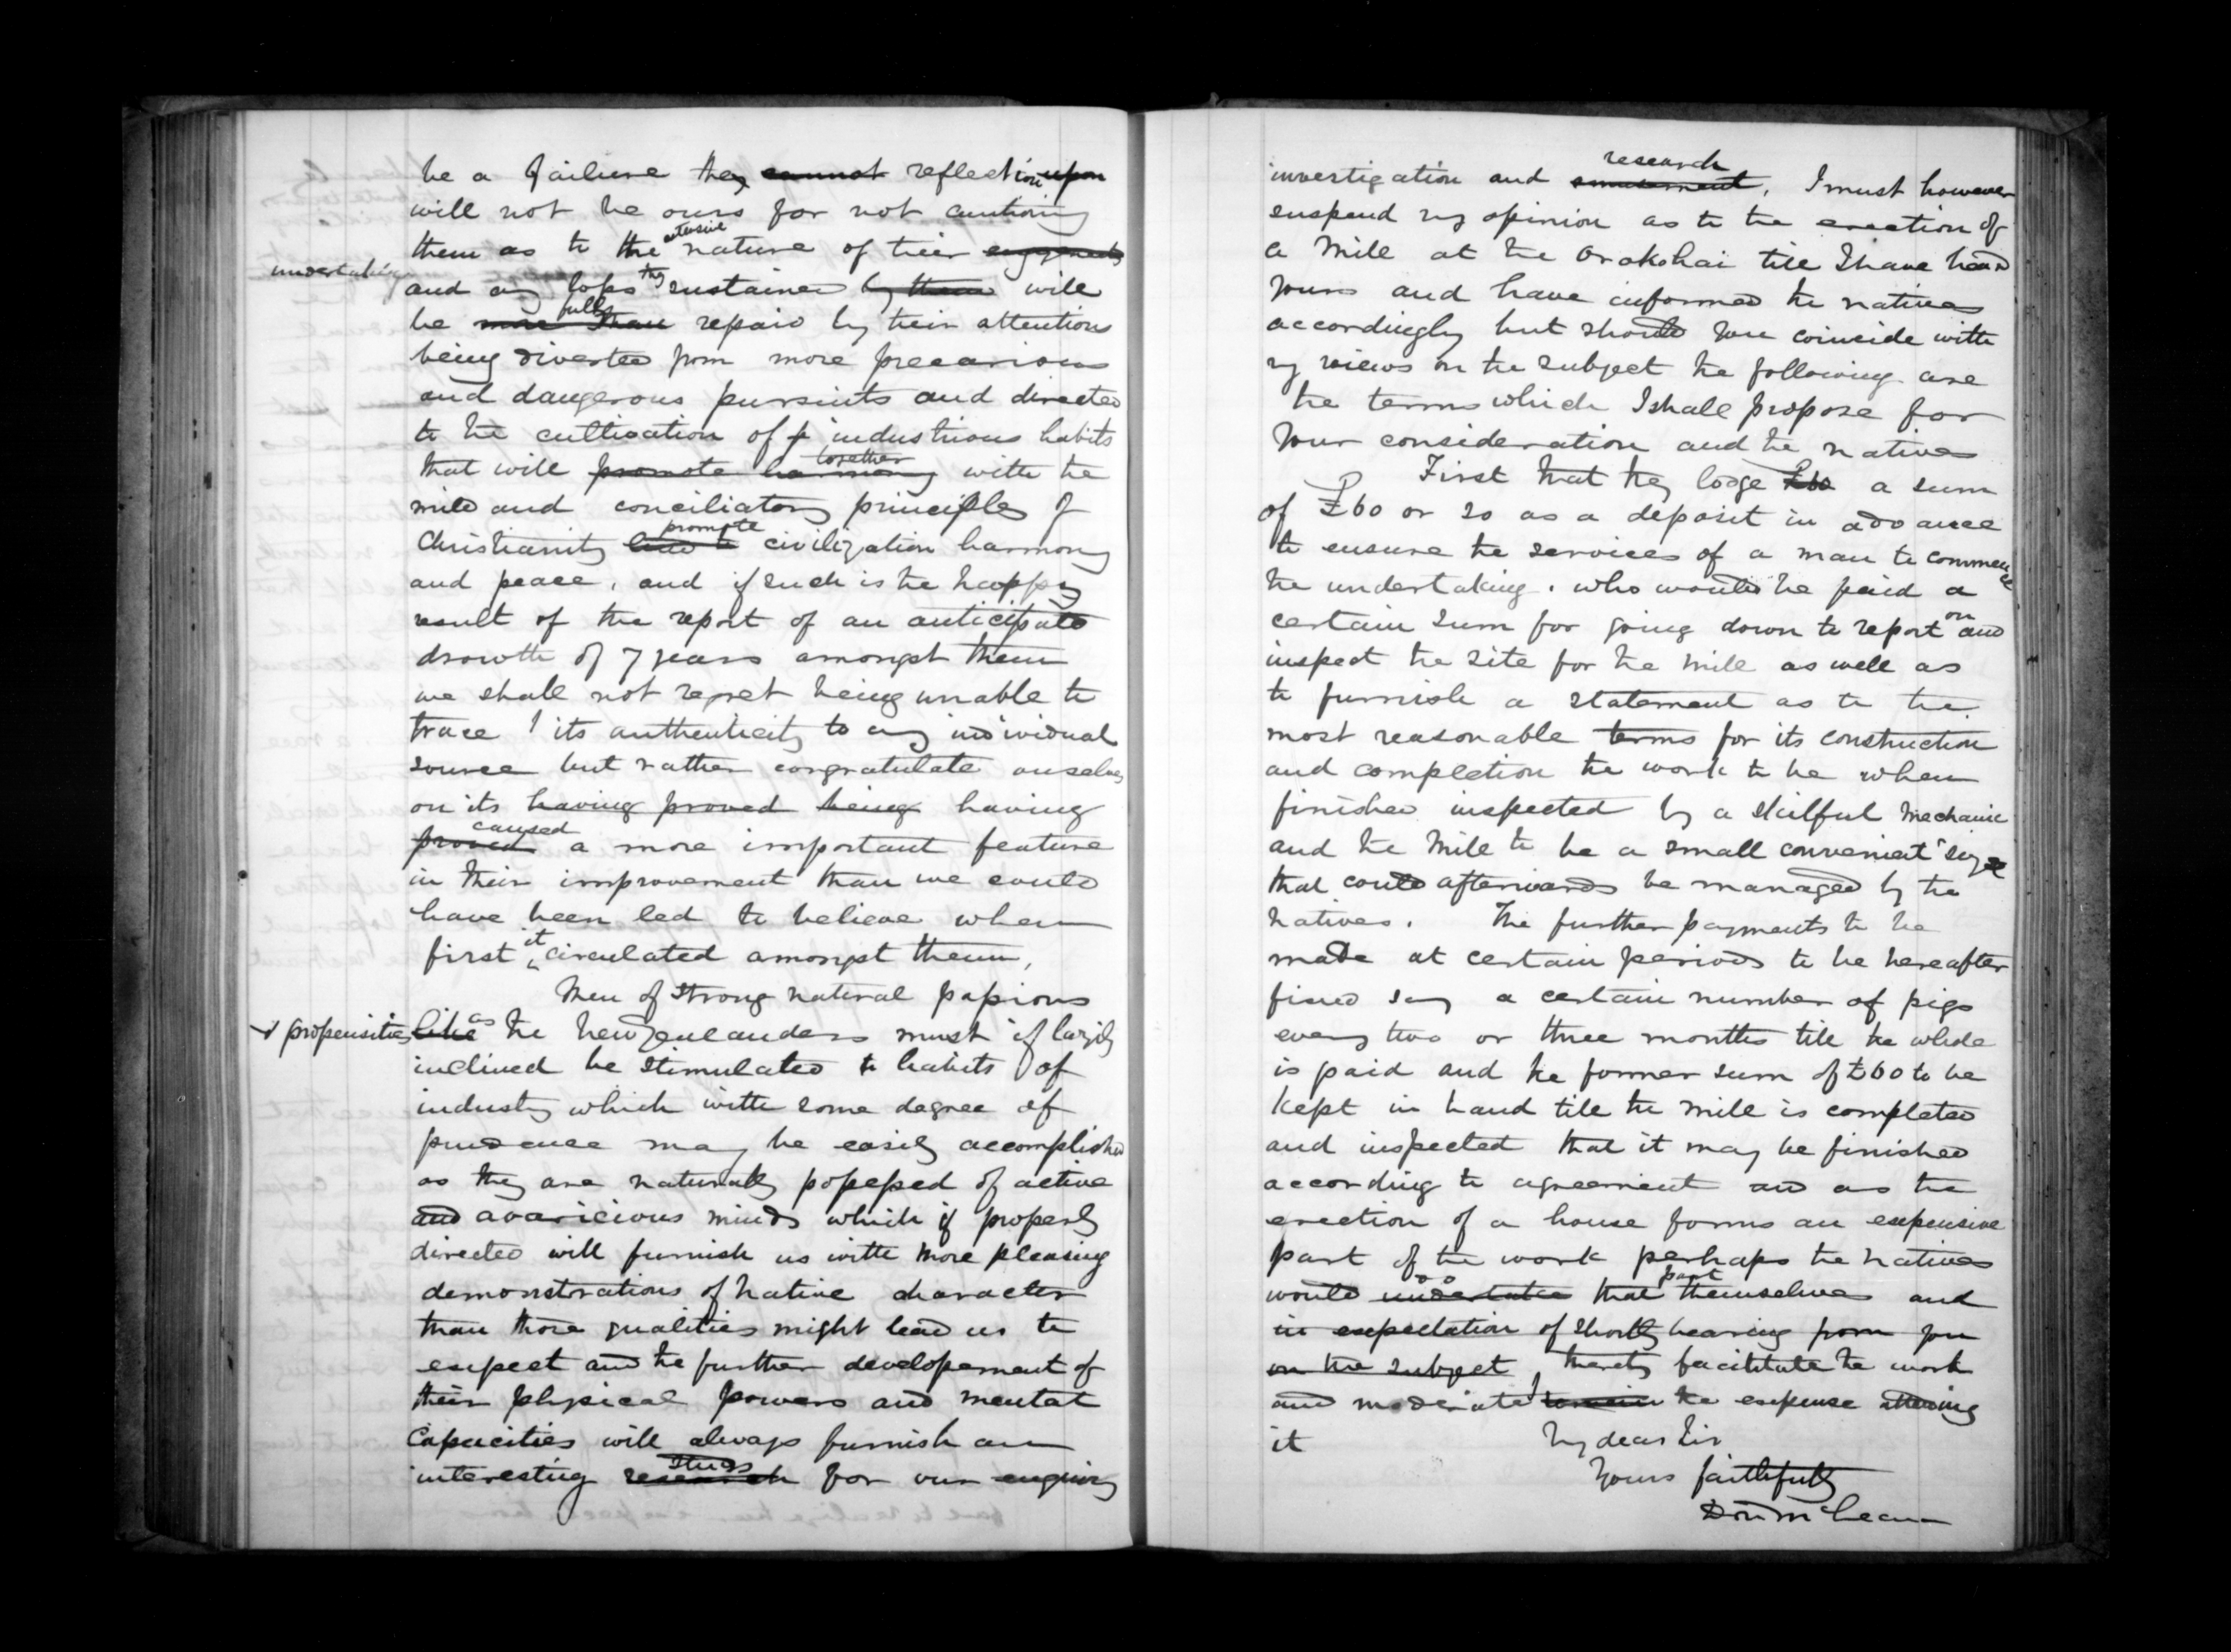 be a failure they cannot reflection upon
will not be ours for not cautioning
them as to the extensive nature of their
undertaking
and any loss they sustained by them will
be more than fully repaid by their attentions
being diverted from more precarious
and dangerous pursuits and directed
to the cultivation of industrious habits
that will promote harmony together with the
mild and conciliatory principles of
Christianity lead to promote civilization harmony
and peace, and if such is the happy
result of the report of an anticipated
drowth of 7 years amongst them
we shall not regret being unable to
trace its authenticity to any individual
source but rather congratulate ourselves
on its having proved being having
proved caused a more important feature
in their improvement than we could
have been led to believe when
first it circulated amongst them,
Men of strong natural passions
+ propensities like as the New Zealanders must if lazily
inclined be stimulated to habits of
industry which with some degree of
prudence may be easily accomplished
as they are naturally possessed of active
and avaricious minds which if properly
directed will furnish us with more pleasing
demonstrations of native character
than those qualities might lead us to
expect and the further developement of
their physical powers and mental
capacities will always furnish an
interesting research study for our enquiry
investigation and amusement research. I must however
suspend my opinion as to the erection of
a Mill at the Orakohai till I have heard
yours and have informed the natives
accordingly but should you coincide with
my views on the subject the following are
the terms which I shall propose for
your consideration and the natives
First that they lodge £60 a sum
of £60 or so as a deposit in advance
to ensure the services of a man to commence
the undertaking. who would be paid a
certain sum for going down to report on and
inspect the site for the mill as well as
to furnish a statement as to the
most reasonable terms for its construction
and completion the work to be when
finished inspected by a skilful mechanic
and the Mill to be a small convenient size
that could afterwards be managed by the
natives. The further payments to be
made at certain periods to be hereafter
fixed say a certain number of pigs
every two or three months till the whole
is paid and the former sum of £60 to be
kept in hand till the mill is completed
and inspected that it may be finished
according to agreement and as the
erection of a house forms an expensive
part of the work perhaps the natives
would undertake do that part themselves and
in expectation of shortly hearing from you
on the subject, thereby facilitate the work
and moderate the expense attending
it
My dear Sir
Yours faithfully
Don McLean